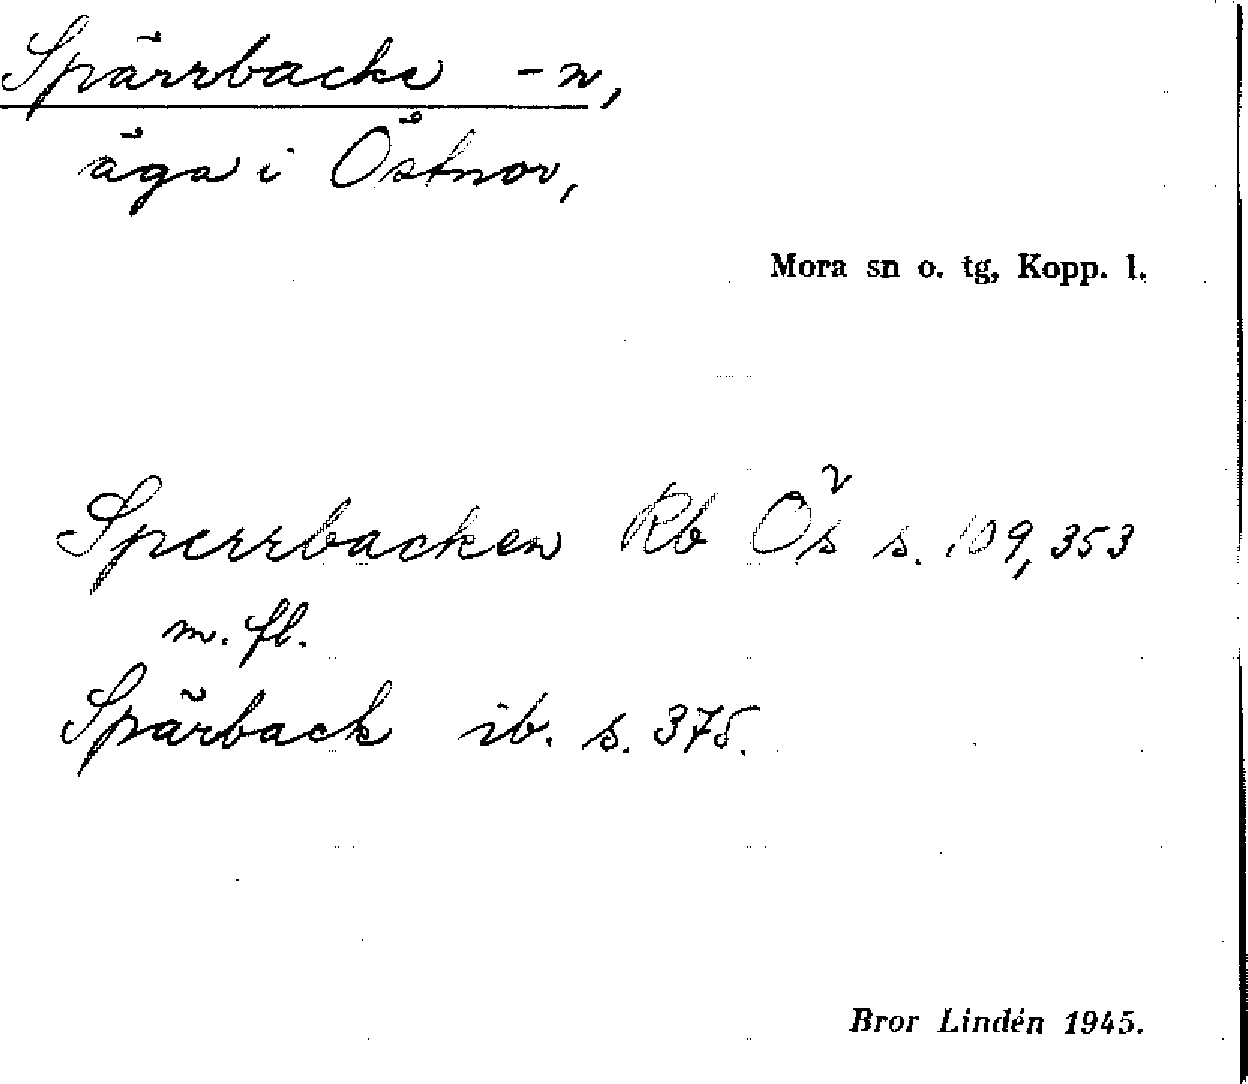 Spärrbacke -n,
äga i Östnor,
Mora sn o. tg, Kopp. l.
Sperrbacken Rb Ös s. 109, 353
m. fl.
Spärback ib. s. 375.
Bror Lindén 1945.